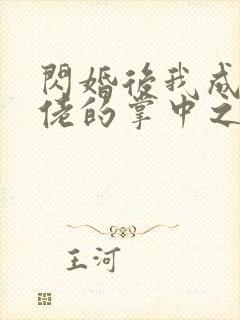 閃婚後我成
佬的掌中之
王河